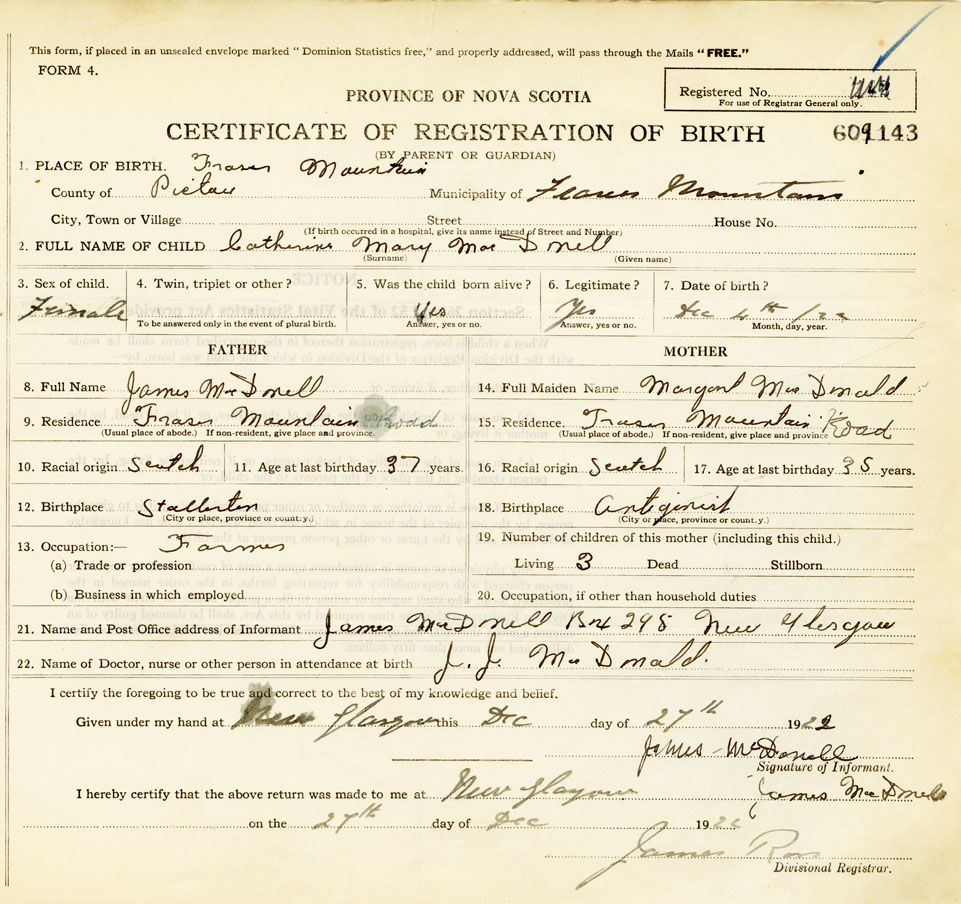 This form, if placed in an unsealed envelope marked "Dominion Statistics free," and properly addressed, will pass through the Mails "FREE."
FORM 4.
Registered No.
For use of Registrar General only.
PROVINCE OF NOVA SCOTIA
CERTIFICATE OF REGISTRATION OF BIRTH 609143
(BY PARENT OR GUARDIAN)
1. PLACE OF BIRTH. Fraser Mountain
County of Pictou Municipality of Fraser Mountain
City, Town or Village Street House No.
(If birth occurred in a hospital, give its name instead of Street and Number)
2. FULL NAME OF CHILD Catherine Mary MacDonell
(Surname) (Given name)
3. Sex of child. 4. Twin, triplet or other? 5. Was the child born alive? 6. Legitimate? 7. Date of birth?
Female Yes Yes Dec 4th /22
To be answered only in the event of plural birth. Answer, yes or no. Answer, yes or no. Month, day, year.
FATHER MOTHER
8. Full Name James MacDonell 14. Full Maiden Name Margaret MacDonald
9. Residence Fraser Mountain Road 15. Residence. Fraser Mountain Road
(Usual place of abode.) If non-resident, give place and province. (Usual place of abode.) If non-resident, give place and province
10. Racial origin Scotch 11. Age at last birthday 37 years. 16. Racial origin Scotch 17. Age at last birthday 35 years.
12. Birthplace Stellerton 18. Birthplace Antigonish
(City or place, province or country.) (City or place, province or country.)
13. Occupation:— Farmer 19. Number of children of this mother (including this child.)
(a) Trade or profession Living 3 Dead Stillborn
(b) Business in which employed 20. Occupation, if other than household duties
21. Name and Post Office address of Informant James MacDonell Box 298 New Glasgow
22. Name of Doctor, nurse or other person in attendance at birth J. J. MacDonald.
I certify the foregoing to be true and correct to the best of my knowledge and belief.
Given under my hand at New Glasgow this Dec day of 27th 1922
James McDonell
Signature of Informant.
I hereby certify that the above return was made to me at New Glasgow James MacDonell
on the 27th day of Dec 1922
James Ross
Divisional Registrar.